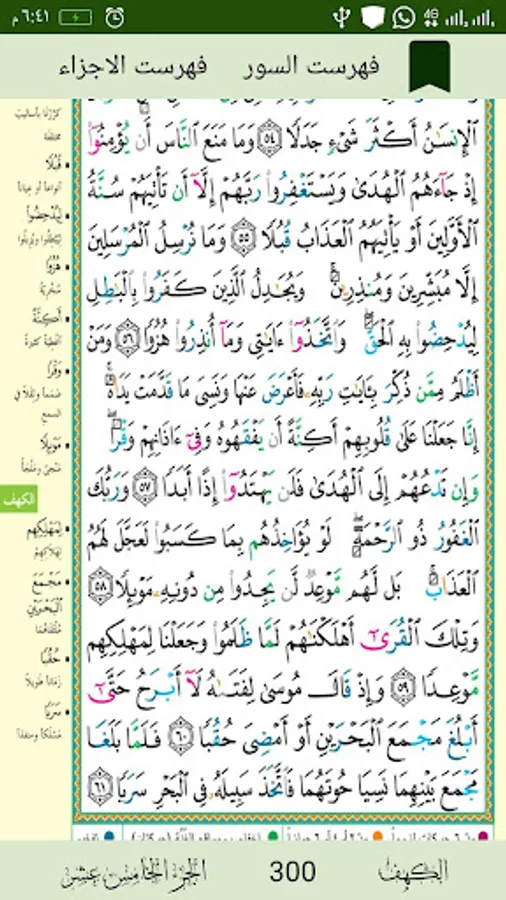 ٦:٤١ م
4G
فهرست السور
فهرست الاجزاء
الْإِنسَٰنُ أَكْثَرَ شَىْءٍ جَدَلًا ٥٤ وَمَا مَنَعَ النَّاسَ أَن يُؤْمِنُوٓا۟
إِذْ جَآءَهُمُ الْهُدَىٰ وَيَسْتَغْفِرُوا۟ رَبَّهُمْ إِلَّآ أَن تَأْتِيَهُمْ سُنَّةُ
الْأَوَّلِينَ أَوْ يَأْتِيَهُمُ الْعَذَابُ قُبُلًا ٥٥ وَمَا نُرْسِلُ الْمُرْسَلِينَ
إِلَّا مُبَشِّرِينَ وَمُنذِرِينَ ۚ وَيُجَٰدِلُ الَّذِينَ كَفَرُوا۟ بِالْبَٰطِلِ
لِيُدْحِضُوا۟ بِهِ الْحَقَّ ۖ وَاتَّخَذُوٓا۟ ءَايَٰتِى وَمَآ أُنذِرُوا۟ هُزُوًا ٥٦ وَمَنْ
أَظْلَمُ مِمَّن ذُكِّرَ بِـَٔايَٰتِ رَبِّهِۦ فَأَعْرَضَ عَنْهَا وَنَسِىَ مَا قَدَّمَتْ يَدَاهُ ۚ
إِنَّا جَعَلْنَا عَلَىٰ قُلُوبِهِمْ أَكِنَّةً أَن يَفْقَهُوهُ وَفِىٓ ءَاذَانِهِمْ وَقْرًا ۖ
وَإِن تَدْعُهُمْ إِلَى الْهُدَىٰ فَلَن يَهْتَدُوٓا۟ إِذًا أَبَدًا ٥٧ وَرَبُّكَ
الْغَفُورُ ذُو الرَّحْمَةِ ۖ لَوْ يُؤَاخِذُهُم بِمَا كَسَبُوا۟ لَعَجَّلَ لَهُمُ
الْعَذَابَ ۚ بَل لَّهُم مَّوْعِدٌ لَّن يَجِدُوا۟ مِن دُونِهِۦ مَوْئِلًا ٥٨
وَتِلْكَ الْقُرَىٰٓ أَهْلَكْنَٰهُمْ لَمَّا ظَلَمُوا۟ وَجَعَلْنَا لِمَهْلِكِهِم
مَّوْعِدًا ٥٩ وَإِذْ قَالَ مُوسَىٰ لِفَتَىٰهُ لَآ أَبْرَحُ حَتَّىٰٓ
أَبْلُغَ مَجْمَعَ الْبَحْرَيْنِ أَوْ أَمْضِىَ حُقُبًا ٦٠ فَلَمَّا بَلَغَا
مَجْمَعَ بَيْنِهِمَا نَسِيَا حُوتَهُمَا فَاتَّخَذَ سَبِيلَهُۥ فِى الْبَحْرِ سَرَبًا ٦١
كَرَّرْنَا بأساليبَ
مختلفة
قُبُلًا
أنواعاً أو عياناً
لِيُدْحِضُوا۟
لِيُبْطِلُوا ويُزيلوا
هُزُوًا
سُخريةً
أَكِنَّةً
أغطية كثيرة
وَقْرًا
صَمَماً وثِقَلاً في
السمع
مَوْئِلًا
مَنْجىً ومَلْجأً
الكهف
لِمَهْلِكِهِم
لِهَلاكِهِمْ
مَجْمَعَ
الْبَحْرَيْنِ
مُلتقاهُما
حُقُبًا
زماناً طويلاً
سَرَبًا
مَسْلَكاً ومنفذاً
الكهف
300
الجزء الخامس عشر